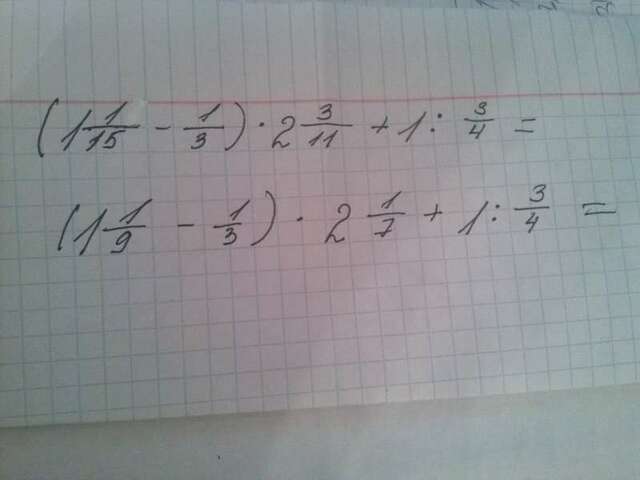 (1 1/15 - 1/3) · 2 3/11 + 1 : 3/4 =
(1 1/9 - 1/3) · 2 1/7 + 1 : 3/4 =